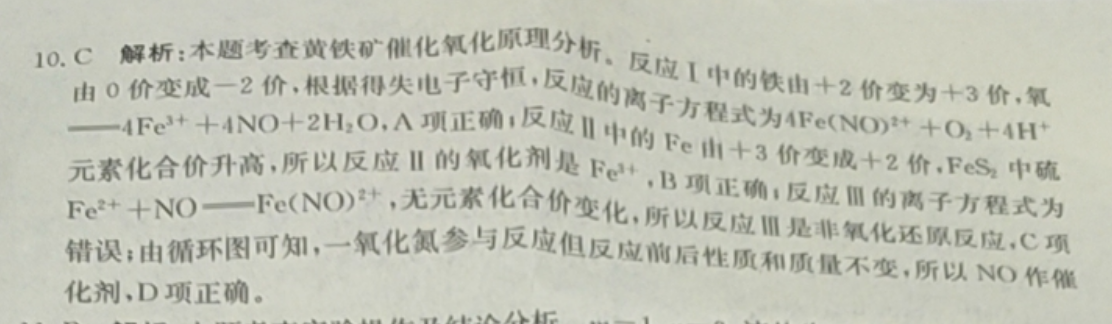 10. C 解析:本题考查黄铁矿催化氧化原理分析。反应Ⅰ中的铁由+2价变为+3价,氧
由0价变成-2价,根据得失电子守恒,反应的离子方程式为4Fe(NO)²⁺+O₂+4H⁺
══4Fe³⁺+4NO+2H₂O,A项正确;反应Ⅱ中的Fe由+3价变成+2价,FeS₂中硫
元素化合价升高,所以反应Ⅱ的氧化剂是Fe³⁺,B项正确;反应Ⅲ的离子方程式为
Fe²⁺+NO══Fe(NO)²⁺,无元素化合价变化,所以反应Ⅲ是非氧化还原反应,C项
错误;由循环图可知,一氧化氮参与反应但反应前后性质和质量不变,所以NO作催
化剂,D项正确。